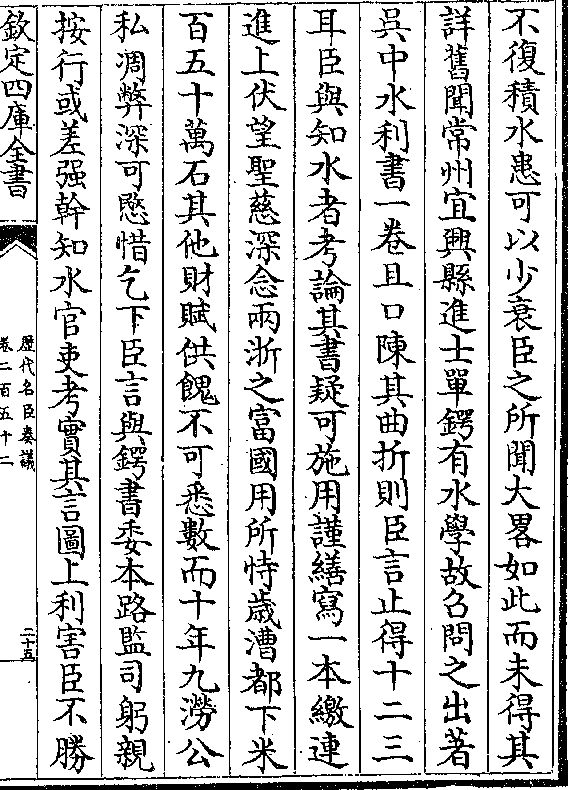 不復積水患可以少衰臣之所聞大畧如此而未得其
詳舊聞常州宜興縣進士單鍔有水學故召問之出著
吳中水利書一卷且口陳其曲折則臣言止得十二三
耳臣與知水者考論其書疑可施用謹繕寫一本繳連
進上伏望聖慈深念兩浙之富國用所恃歲漕都下米
百五十萬石其他財賦供餽不可悉數而十年九澇公
私凋弊深可愍惜乞下臣言與鍔書委本路監司躬親
按行或差强幹知水官吏考實其言圖上利害臣不勝
欽定四庫全書
歷代名臣奏議
卷二百五十二
二十五